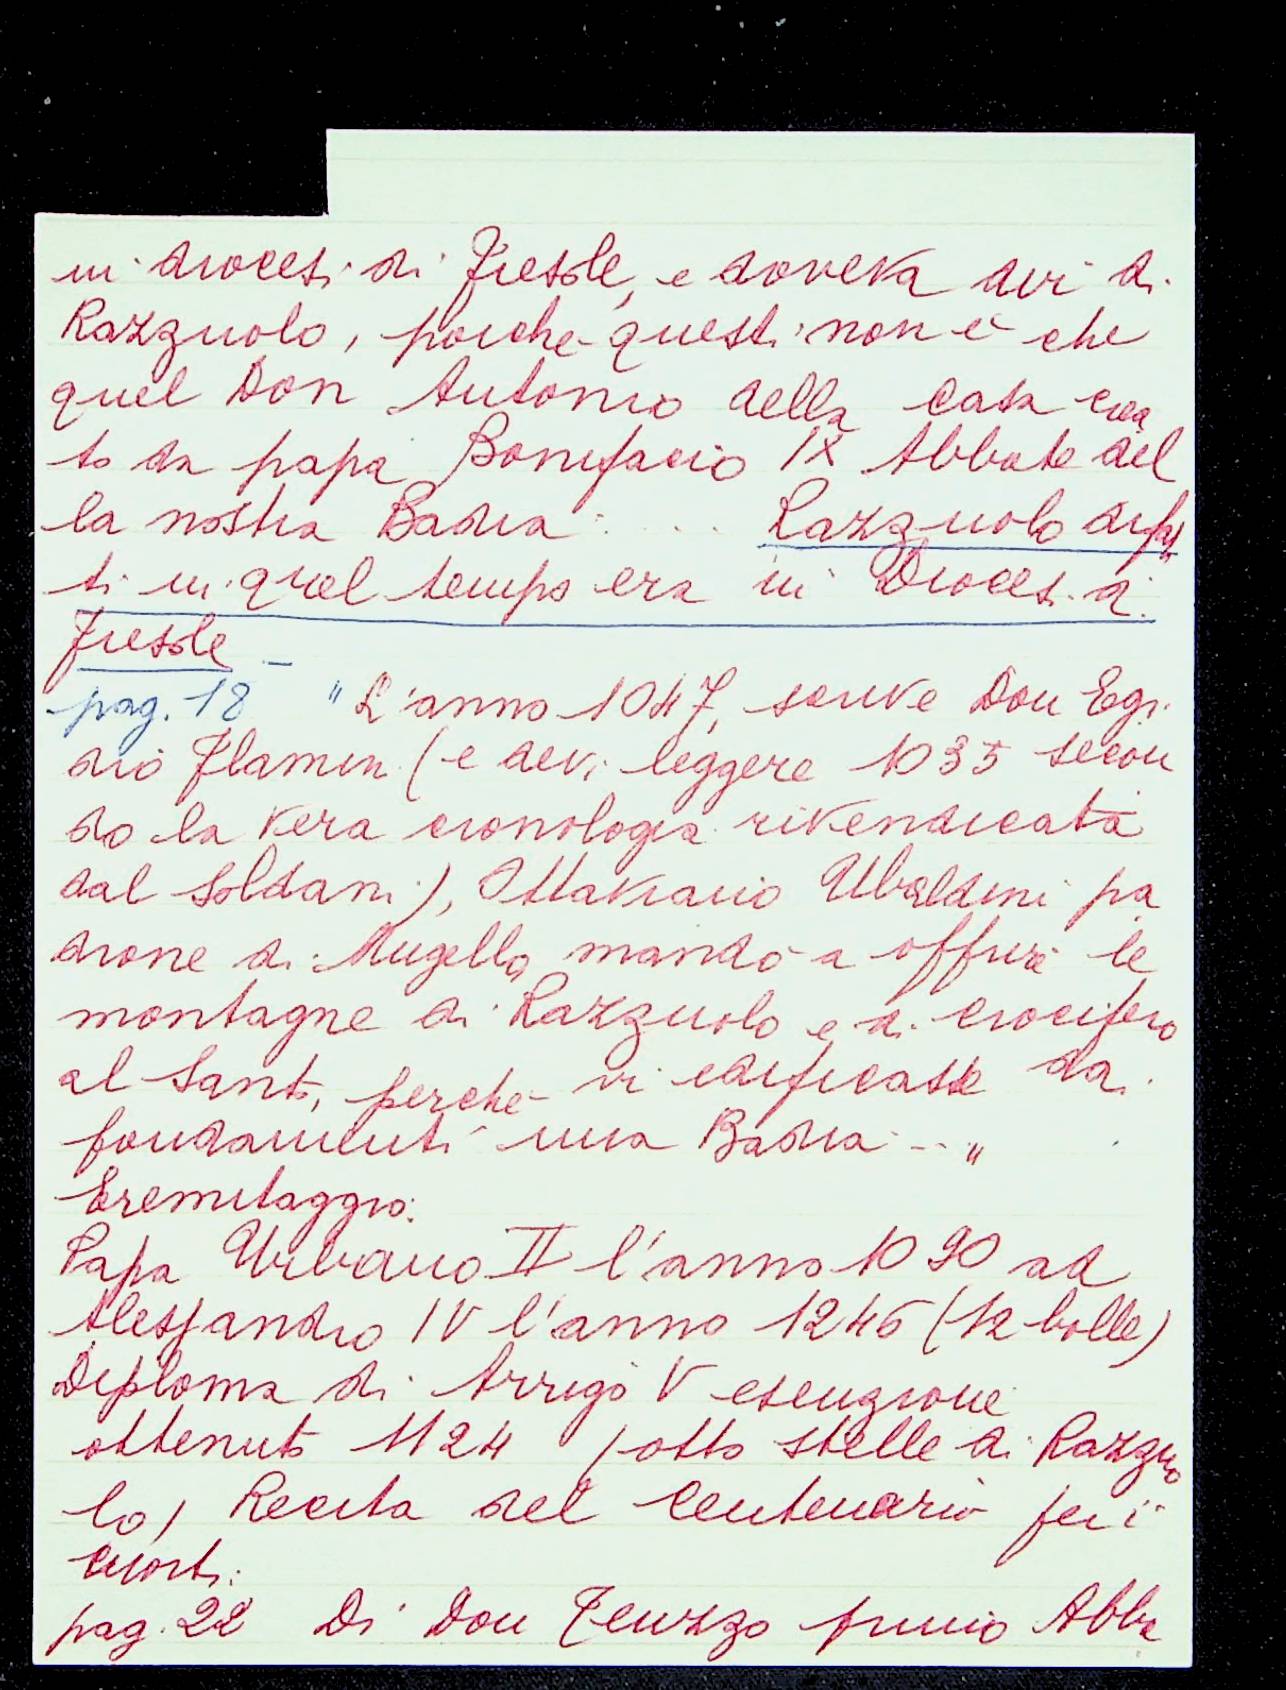 in diocesi di Fiesole, e doveva dir di
Razzuolo, poiche questi non è che
quel Don Antonio della Casa crea
to da papa Bonifacio IX Abbate del
la nostra Badia: ... Razzuolo difat
ti in quel tempo era in Diocesi di
Fiesole –
pag. 18 "L'anno 1047, scrive Don Egi
dio Flamin (e devi leggere 1035 secon
do la vera cronologia rivendicata
dal Soldani), Ottaviano Ubaldini pa
drone di Mugello, mandò a offrire le
montagne di Razzuolo e di Crocifero
al Santo, perche vi edificasse da
fondamenti una Badia ..."
Eremitaggio:
Papa Urbano II l'anno 1090 ad
Alessandro IV l'anno 1246 (12 bolle)
Diploma di Arrigo V esenzione
ottenuto 1124 (otto stelle di Razzuo
lo) Recita del Centenario per i
morti:
pag. 22 Di Don Teuzzo primo Abba